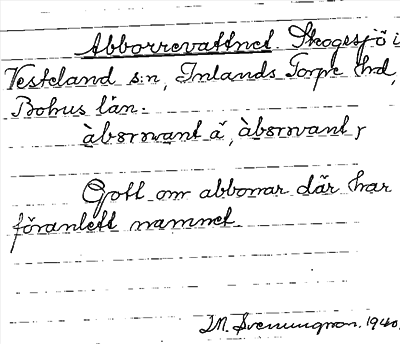 Abborrevattnet. Skogssjö i
Vesteland s:n, Inlands Torpe hd,
Bohus län.
àbɔrvant ā, àbɔrvant,
Gott om abborrar där har
föranlett namnet.
M. Svenungson. 1940.